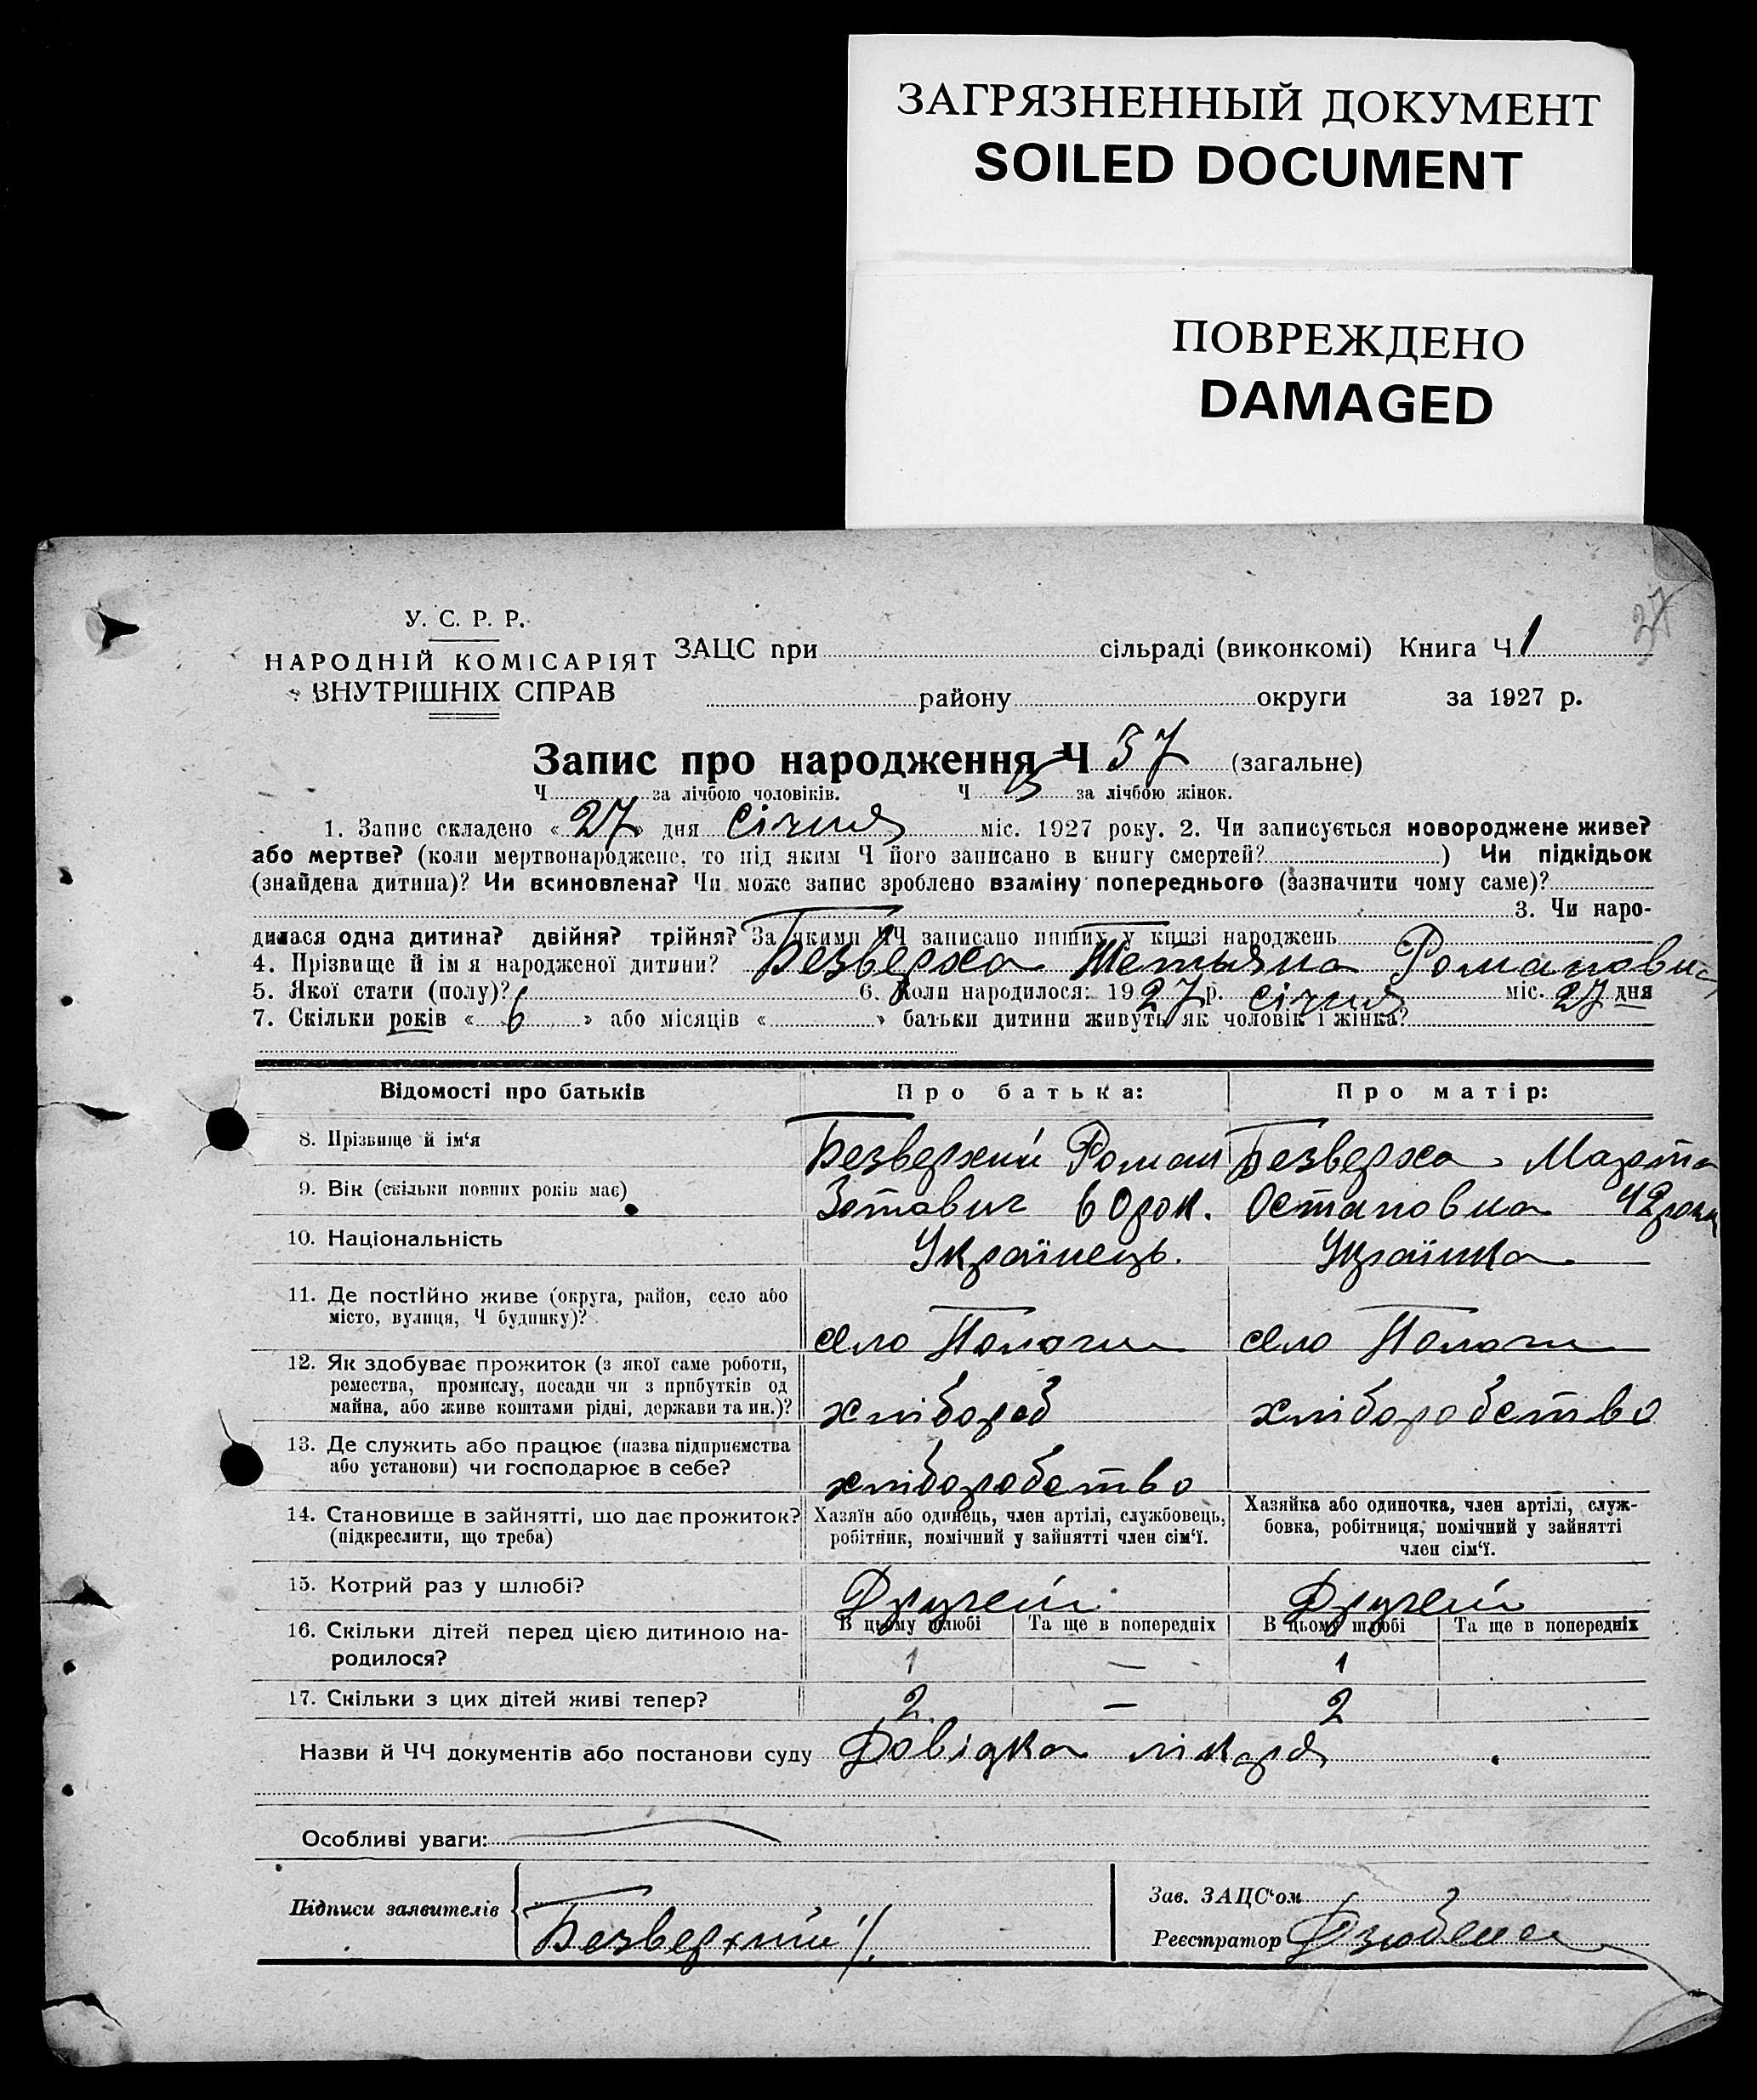 ЗАГРЯЗНЕННЫЙ ДОКУМЕНТ
SOILED DOCUMENT
ПОВРЕЖДЕНО
DAMAGED
37
У. С. Р. Р.
НАРОДНІЙ КОМІСАРІЯТ
ВНУТРІШНІХ СПРАВ
ЗАЦС при сільраді (виконкомі) Книга Ч 1
району округи за 1927 р.
Запис про народження Ч 37 (загальне)
Ч за лічбою чоловіків. Ч за лічбою жінок.
1. Запис складено « 27 » дня Січня міс. 1927 року. 2. Чи записується новороджене живе?
або мертве? (коли мертвонароджене, то під яким Ч його записано в книгу смертей? ) Чи підкідьок
(знайдена дитина)? Чи всиновлена? Чи може запис зроблено взаміну попереднього (зазначити чому саме)?
3. Чи наро-
дилася одна дитина? двійня? трійня? За якими ЧЧ записано инших у книзі народжень
4. Прізвище й ім'я народженої дитини? Безверха Тетьяна Романовна
5. Якої стати (полу)? 6. Коли народилося: 1927 р. Січня міс. 27 дня
7. Скільки років « 6 » або місяців « » батьки дитини живуть як чоловік і жінка?
Відомості про батьків Про батька: Про матір:
8. Прізвище й ім‘я Безверхий Роман Безверха Марта
9. Вік (скільки повних років має) 60 рок. Остаповна 42 роки
10. Національність Українець. Українка
11. Де постійно живе (округа, район, село або
місто, вулиця, Ч будинку)? село Пологи село Пологи
12. Як здобуває прожиток (з якої саме роботи,
ремества, промислу, посади чи з прибутків од
майна, або живе коштами рідні, держави та ин.)? хлібороб хліборобство
13. Де служить або працює (назва підприємства
або установи) чи господарює в себе? хліборобство
14. Становище в зайнятті, що дає прожиток? Хазяїн або одинець, член артілі, службовець, Хазяйка або одиночка, член артілі, служ-
(підкреслити, що треба) робітник, помічний у зайнятті член сім‘ї. бовка, робітниця, помічний у зайнятті
член сім‘ї.
15. Котрий раз у шлюбі? Другей Другей
В цьому шлюбі Та ще в попередніх В цьому шлюбі Та ще в попередніх
16. Скільки дітей перед цією дитиною на-
родилося? 1 — 1
17. Скільки з цих дітей живі тепер? 2 — 2
Назви й ЧЧ документів або постанови суду Довідка лікаря
Особливі уваги:
Підписи заявителів Безверхий
Зав. ЗАЦС‘ом
Реєстратор